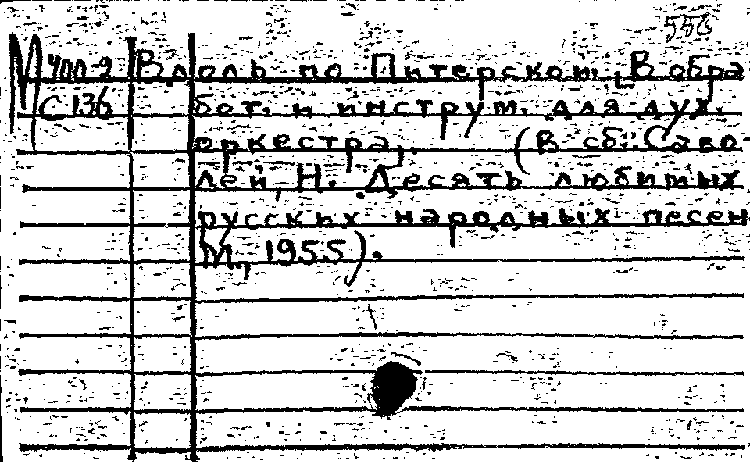 556
М 400-2 Вдоль по Питерской. В обра
С 136 бот. и инструм. для дух.
оркестра. (В сб.: Саво-
лей, Н. Десять любимых
русских народных песен
М., 1955).